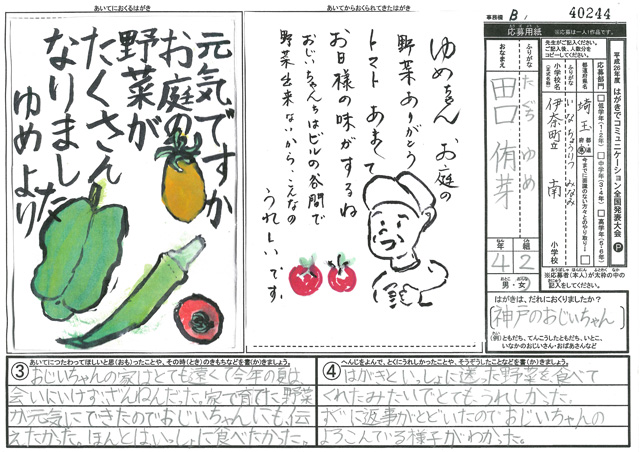 あいてにおくるはがき
元気ですか
お庭の
野菜が
たくさん
なりました
ゆめより
あいてからおくられてきたはがき
ゆめちゃん お庭の
野菜ありがとう
トマト あまくて
お日様の味がするね
おじいちゃんちはビルの谷間で
野菜出来ないから、こんなの
うれしいです。
事務欄 B
40244
応募用紙
※応募は一人1作品です。
平成26年度 はがきでコミュニケーション全国発表大会 P
応募部門
低学年(1・2年)
中学年(3・4年)
高学年(5・6年)
都道府県名
埼玉
ふりがな いなちょうりつ みなみ
小学校名
伊奈町立 南 小学校
ふりがな たぐち ゆめ
おなまえ
田口 侑芽
年 組
4 2
男・女
※応募者(本人)が太枠の中の
記入をしてください。
はがきは、だれにおくりましたか?
神戸のおじいちゃん
(例)ともだち、てんこうしたともだち、いとこ、
いなかのおじいさん・おばあさんなど
あいてにつたわってほしいと思(おも)ったことや、その時(とき)のきもちなどを書(か)きましょう。
③ おじいちゃんの家はとても遠くて今年の夏は
会いにいけず、ざんねんだった。家で育てた野菜
が元気にできたのでおじいちゃんにも、伝
えたかった。ほんとはいっしょに食べたかった。
へんじをよんで、とくにうれしかったことや、そうぞうしたことなどを書(か)きましょう。
④ はがきといっしょに送った野菜を食べて
くれたみたいでとても、うれしかった。
すぐに返事がとどいたのでおじいちゃんの
よろこんでいる様子がわかった。